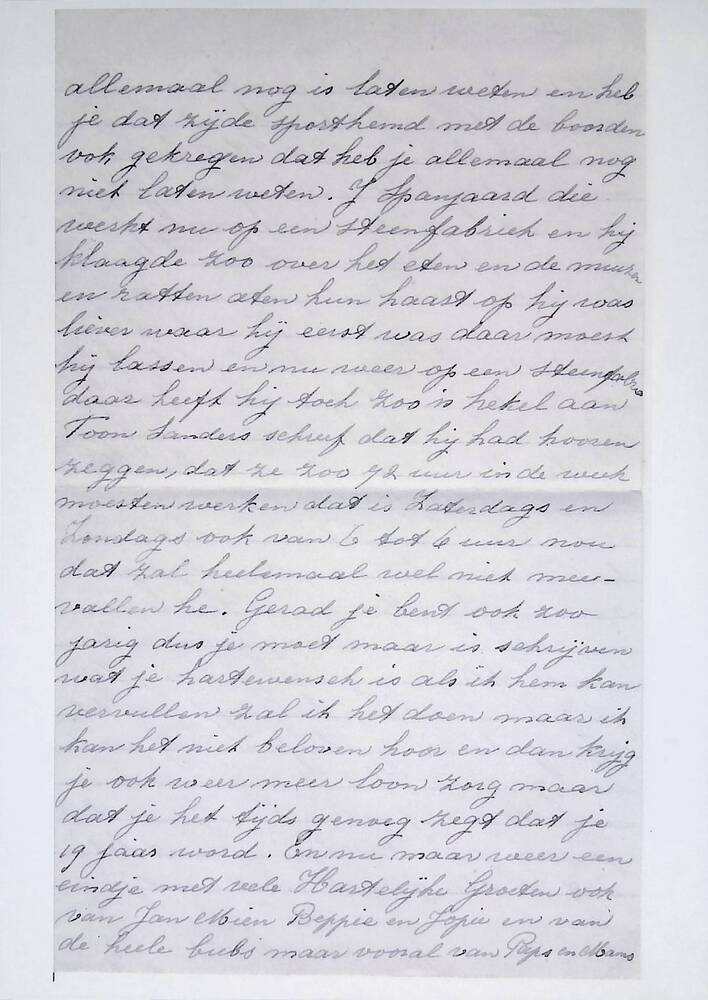 allemaal nog is laten weten en heb
je dat zijde sporthemd met de boorden
ook gekregen dat heb je allemaal nog
niet laten weten. J Spanjaard die
werkt nu op een steenfabriek en hij
klaagde zoo over het eten en de muizen
en ratten aten hun haast op hij was
liever waar hij eerst was daar moest
hij lassen en nu weer op een steenfabriek
daar heeft hij toch zoo is hekel aan
Toon Sanders schreef dat hij had hooren
zeggen, dat ze zoo 72 uur in de week
moesten werken dat is Zaterdags en
Zondags ook van 6 tot 6 uur nou
dat zal heelemaal wel niet mee-
vallen he. Gerad je bent ook zoo
jarig dus je moet maar is schrijven
wat je hartewensch is als ik hem kan
vervullen zal ik het doen maar ik
kan het niet beloven hoor en dan krijg
je ook weer meer loon zorg maar
dat je het tijds genoeg zegt dat je
19 jaar word. En nu maar weer een
eindje met vele Hartelijke Groeten ook
van Jan Mien Beppie en Jopie en van
de heele bubs maar vooral van Paps en Mams